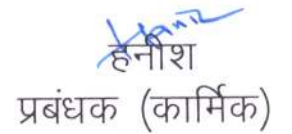 हनीश
प्रबंधक (कार्मिक)